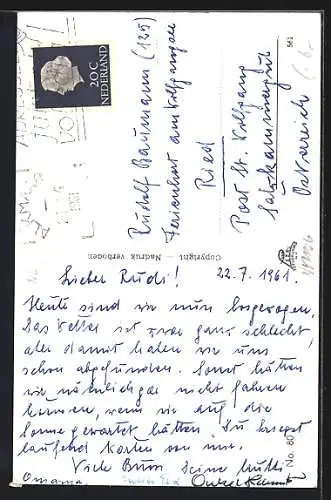 20C
NEDERLAND
Rudolf Baumann (125)
Ferienhort am Wolfgangsee
Ried
Post St. Wolfgang
Salzkammergut
Österreich
561
Copyright — Nadruk verboden
Lieber Rudi! 22.7.1961.
Heute sind wir nun losgezogen.
Das Wetter ist zwar ganz schlecht
aber damit haben wir uns
schon abgefunden. Sonst hätten
wir nämlich gar nicht fahren
können, wenn wir auf die
Sonne gewartet hätten. Du kriegst
laufend Karten von mir.
Viele Bussi Deine Mutti
Omama
No. 80